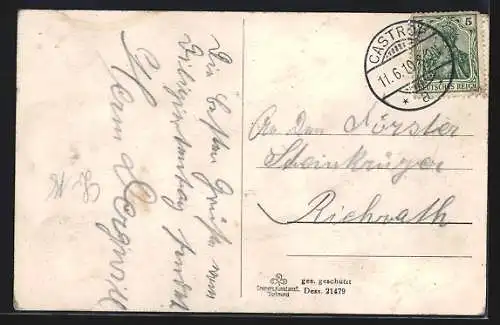 Die besten Grüße vom
Delegiertentag sendet
Herm.
CASTROP
11.6.10
* a
5
DEUTSCHES REICH
An den Förster
Steinkrüger
Richrath
ges. geschützt
Dess. 21479
Dortmund